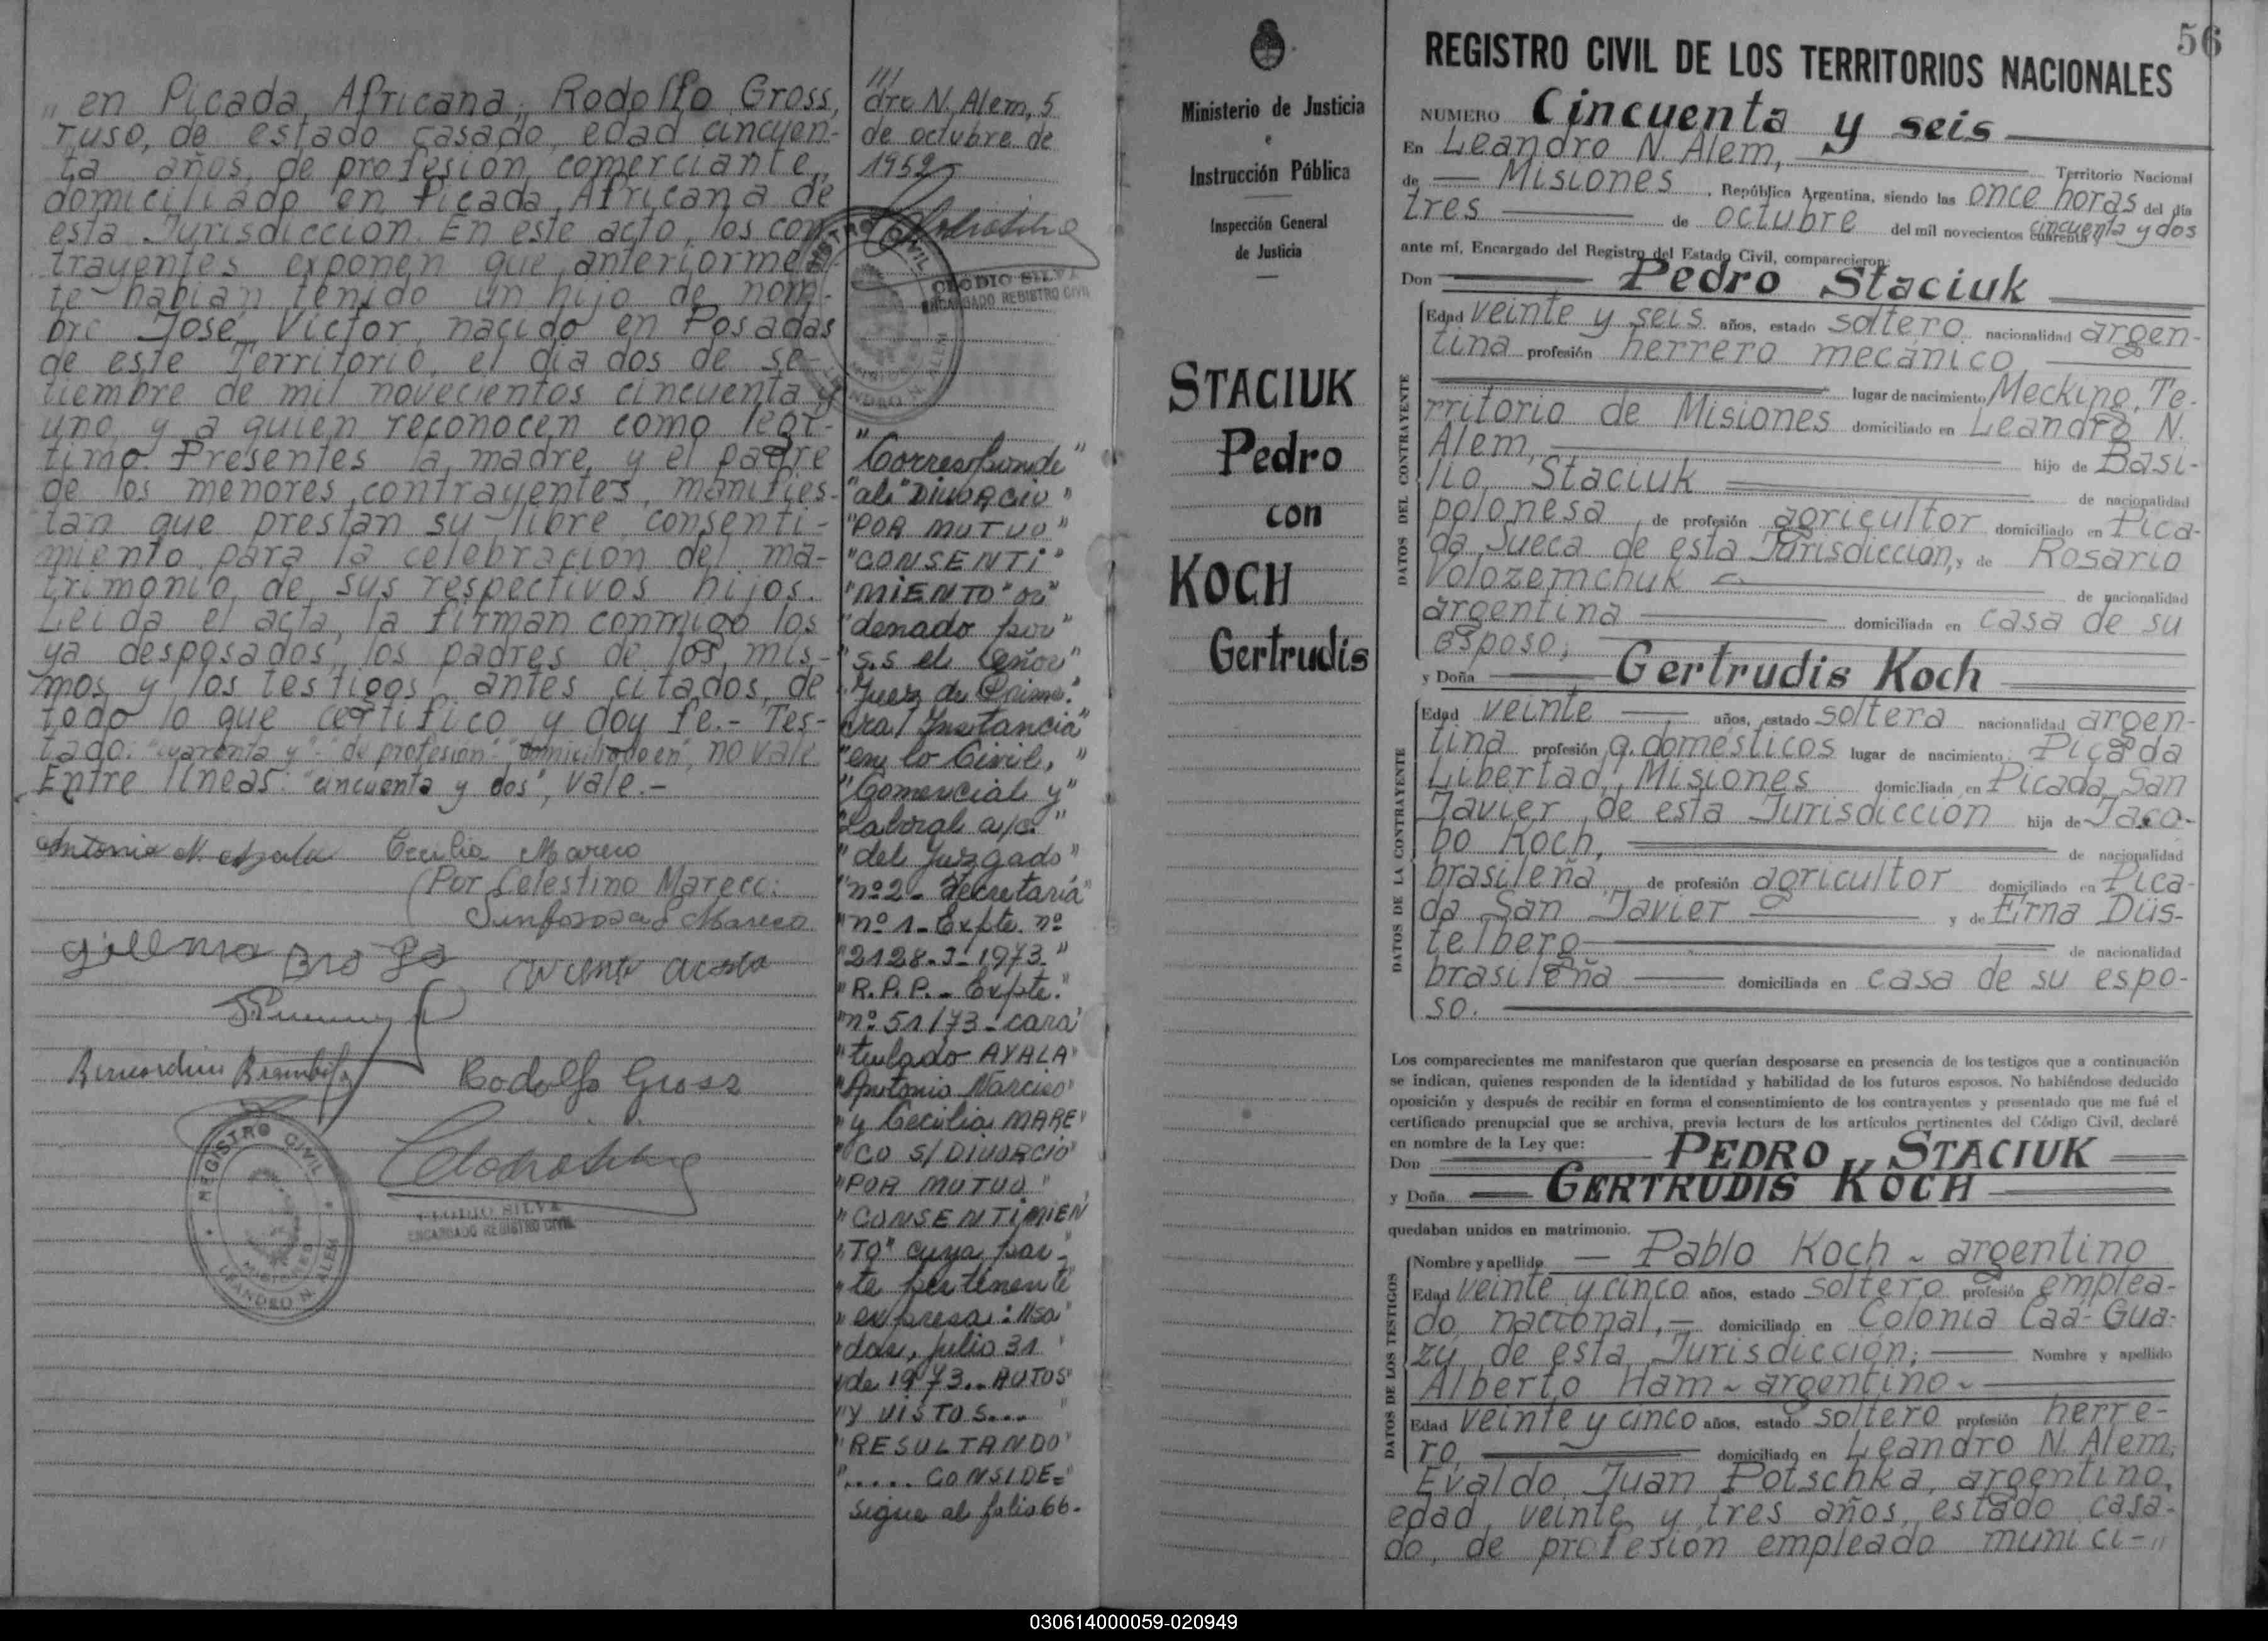 " en Picada Africana; Rodolfo Gross,
ruso, de estado casado, edad cincuen-
ta años, de profesión comerciante,
domiciliado en Picada Africana de
esta Jurisdicción. En este acto, los con-
trayentes exponen que anteriormen-
te habían tenido un hijo de nom-
bre José Victor, nacido en Posadas
de este Territorio, el día dos de se-
tiembre de mil novecientos cincuenta y
uno, y a quien reconocen como legí-
timo. Presentes la madre y el padre
de los menores contrayentes, manifies-
tan que prestan su libre consenti-
miento para la celebración del ma-
trimonio de sus respectivos hijos.
Leída el acta, la firman conmigo los
ya desposados, los padres de los mis-
mos y los testigos antes citados, de
todo lo que certifico y doy fe.- Tes-
tado: "cuarenta y" "de profesión" "domiciliado en", no vale
Entre líneas: "cincuenta y dos", vale.-
Antonio N. Ayala Cecilia Mareco
Por Celestino Mareco:
Sinforosa Mareco
Vicente Acosta
Bernardino Brambilla Rodolfo Gross
REGISTRO CIVIL
MISIONES
LEANDRO N. ALEM
CLODIO SILVA
ENCARGADO REGISTRO CIVIL
///
dro N. Alem, 5
de octubre de
1952
CLODIO SILVA
ENCARGADO REGISTRO CIVIL
REGISTRO CIVIL
MISIONES
LEANDRO N. ALEM
"Corresponde"
"al "DIVORCIO"
"POR MUTUO"
"CONSENTI"
"MIENTO" or"
"denado por"
"S.S el Señor"
"Juez de Prime"
"ra Instancia"
"en lo Civil, "
"Comercial y"
"Laboral a/c."
"del Juzgado"
"nº 2 - Secretaría"
"nº 1 - Expte. nº
"2128-J-1973."
"R.P.P. - Expte."
"nº 51/73 - cara"
"tulado AYALA"
"Antonio Narciso"
"y Cecilia MARE"
"CO S/ DIVORCIO"
"POR MUTUO"
"CONSENTIMIEN
"TO" cuya par-
"te pertinente"
"expresa: //sa"
"das, Julio 31 "
"de 1973.- AUTOS"
"Y VISTOS... "
"RESULTANDO"
"..... CONSIDE="
Sigue al folio 66.-
Ministerio de Justicia
e
Instrucción Pública
Inspección General
de Justicia
STACIUK
Pedro
con
KOCH
Gertrudis
56
REGISTRO CIVIL DE LOS TERRITORIOS NACIONALES
NUMERO Cincuenta y seis
En Leandro N. Alem, Territorio Nacional
de Misiones, República Argentina, siendo las once horas del día
tres de octubre del mil novecientos cuarenta y cincuenta y dos
ante mí, Encargado del Registro del Estado Civil, comparecieron:
Don Pedro Staciuk
DATOS DEL CONTRAYENTE
Edad veinte y seis años, estado soltero nacionalidad argen-
tina profesión herrero mecánico
lugar de nacimiento Mecking, Te-
rritorio de Misiones domiciliado en Leandro N.
Alem, hijo de Basi-
lio Staciuk de nacionalidad
polonesa, de profesión agricultor domiciliado en Pica-
da Sueca de esta Jurisdicción, y de Rosario
Volozemchuk de nacionalidad
argentina domiciliada en casa de su
esposo;
y Doña Gertrudis Koch
DATOS DE LA CONTRAYENTE
Edad veinte años, estado soltera nacionalidad argen-
tina profesión q. domésticos lugar de nacimiento Picada
Libertad, Misiones domiciliada en Picada San
Javier de esta Jurisdicción hija de Jaco-
bo Koch, de nacionalidad
brasileña de profesión agricultor domiciliado en Pica-
da San Javier y de Erna Düs-
telberg de nacionalidad
brasileña domiciliada en casa de su espo-
so.
Los comparecientes me manifestaron que querían desposarse en presencia de los testigos que a continuación
se indican, quienes responden de la identidad y habilidad de los futuros esposos. No habiéndose deducido
oposición y después de recibir en forma el consentimiento de los contrayentes y presentado que me fué el
certificado prenupcial que se archiva, previa lectura de los artículos pertinentes del Código Civil, declaré
en nombre de la Ley que:
Don PEDRO STACIUK
y Doña GERTRUDIS KOCH
quedaban unidos en matrimonio.
DATOS DE LOS TESTIGOS
Nombre y apellido Pablo Koch ~ argentino
Edad veinte y cinco años, estado soltero profesión emplea-
do nacional,- domiciliado en Colonia Caá-Gua-
zú de esta Jurisdicción; Nombre y apellido
Alberto Ham ~ argentino ~
Edad veinte y cinco años, estado soltero profesión herre-
ro, domiciliado en Leandro N. Alem;
Evaldo Juan Potschka, argentino,
edad veinte y tres años, estado casa-
do, de profesión empleado munici-"
030614000059-020949